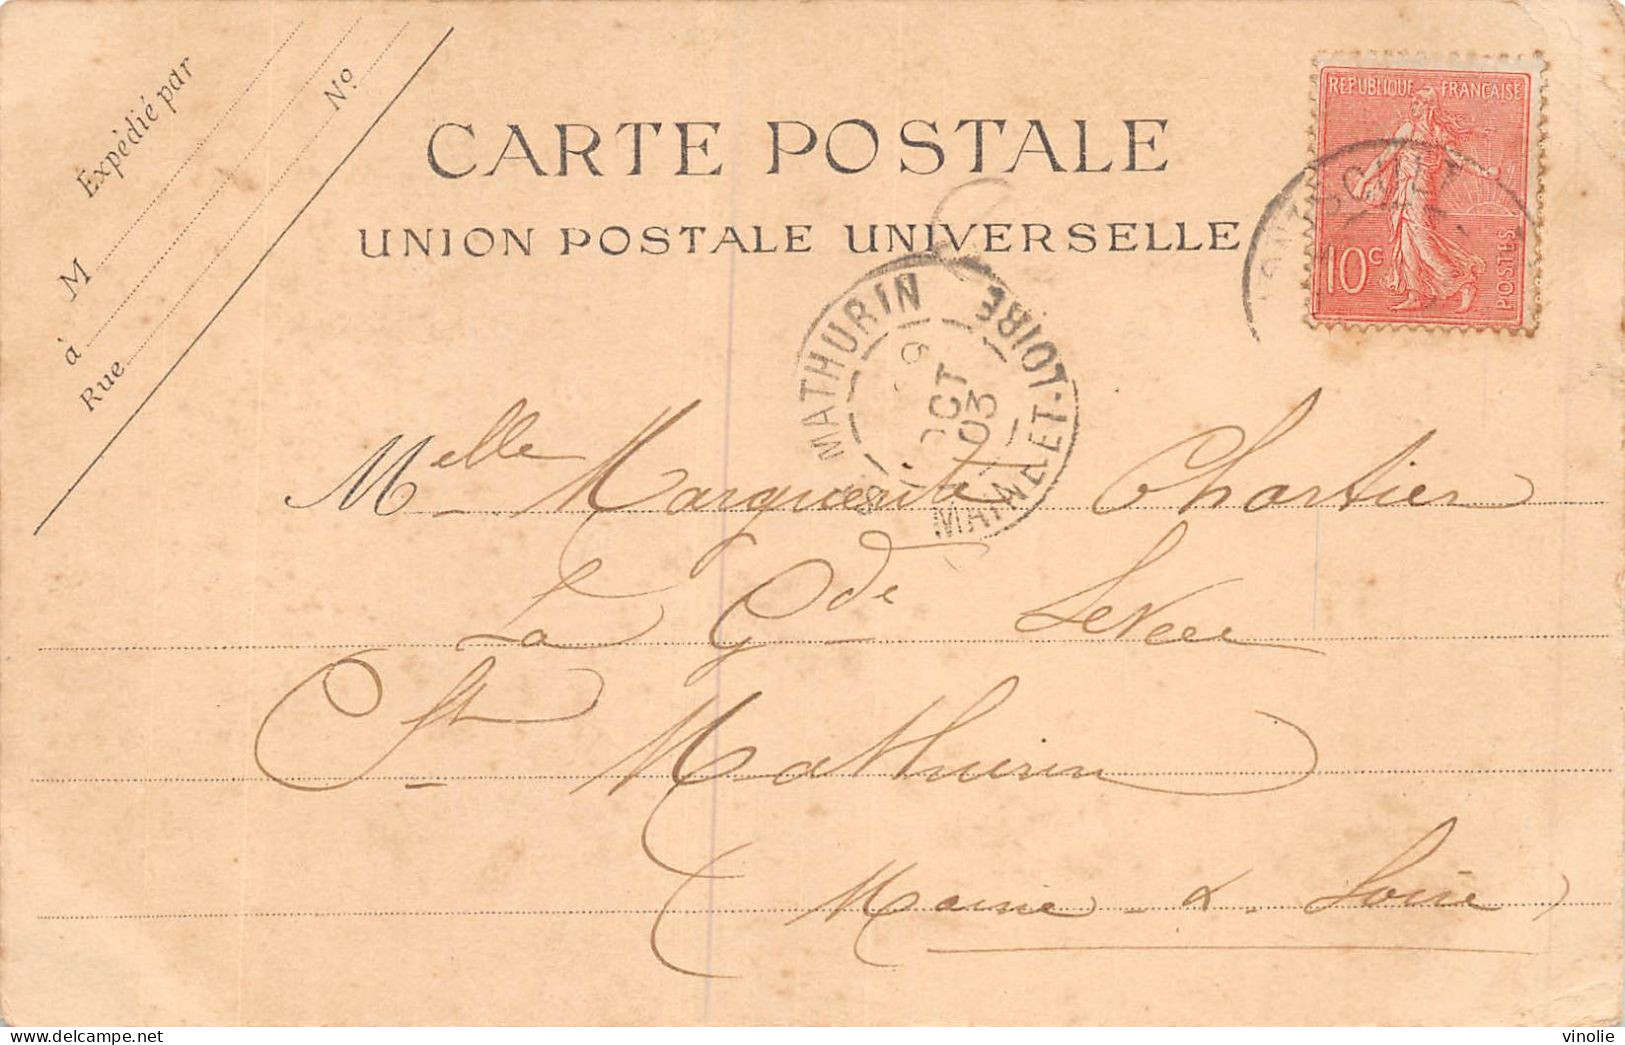 Expédié par
M
à
Rue
Nº
CARTE POSTALE
UNION POSTALE UNIVERSELLE
REPUBLIQUE FRANÇAISE
10c
POSTES
ST MATHURIN
MAINE-ET-LOIRE
6
OCT
03
Melle Marguerite Chartier
La Gde Levée
St Mathurin
(Maine & Loire)
vinolie